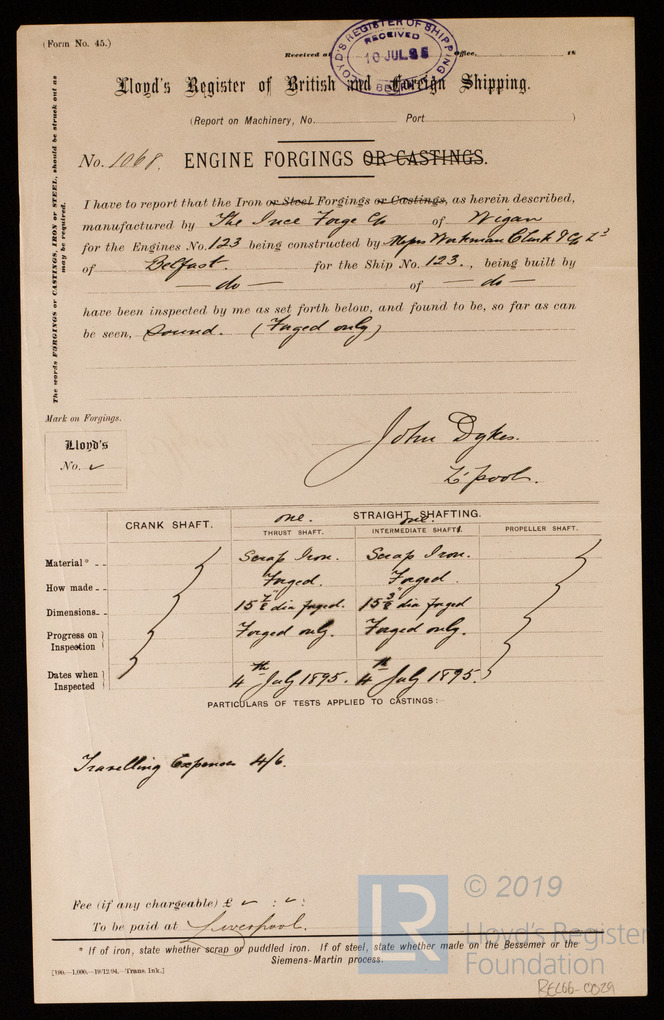 (Form No. 45.)
LLOYD'S REGISTER OF SHIPPING
RECEIVED
10 JUL 95
Received at Office, 18
Lloyd's Register of British and Foreign Shipping.
(Report on Machinery, No. Port )
No. 1068. ENGINE FORGINGS OR CASTINGS.
The words FORGINGS or CASTINGS, IRON or STEEL, should be struck out as
may be required.
I have to report that the Iron or Steel Forgings or Castings, as herein described,
manufactured by The Ince Forge Co of Wigan
for the Engines No. 123 being constructed by Messrs Workman Clark & Co Ld
of Belfast. for the Ship No. 123., being built by
— do — of — do —
have been inspected by me as set forth below, and found to be, so far as can
be seen, sound. (Forged only)
Mark on Forgings.
Lloyd's
No. ✓
John Dykes.
L'pool.
CRANK SHAFT. STRAIGHT SHAFTING.
one. one.
THRUST SHAFT. INTERMEDIATE SHAFTS. PROPELLER SHAFT.
Material* Scrap Iron. Scrap Iron.
How made Forged. Forged.
Dimensions 15 7/8" dia forged. 15 3/8" dia forged
Progress on Inspection Forged only. Forged only.
Dates when Inspected 4th July 1895. 4th July 1895.
PARTICULARS OF TESTS APPLIED TO CASTINGS:
Travelling Expenses 4/6.
Fee (if any chargeable) £ ✓ : ✓ :
To be paid at Liverpool.
* If of iron, state whether scrap or puddled iron. If of steel, state whether made on the Bessemer or the
Siemens-Martin process.
[190.—1,000.—19/12/94.—Trans. Ink.]
LR
© 2019
Lloyd's Register
Foundation
REC66-0029